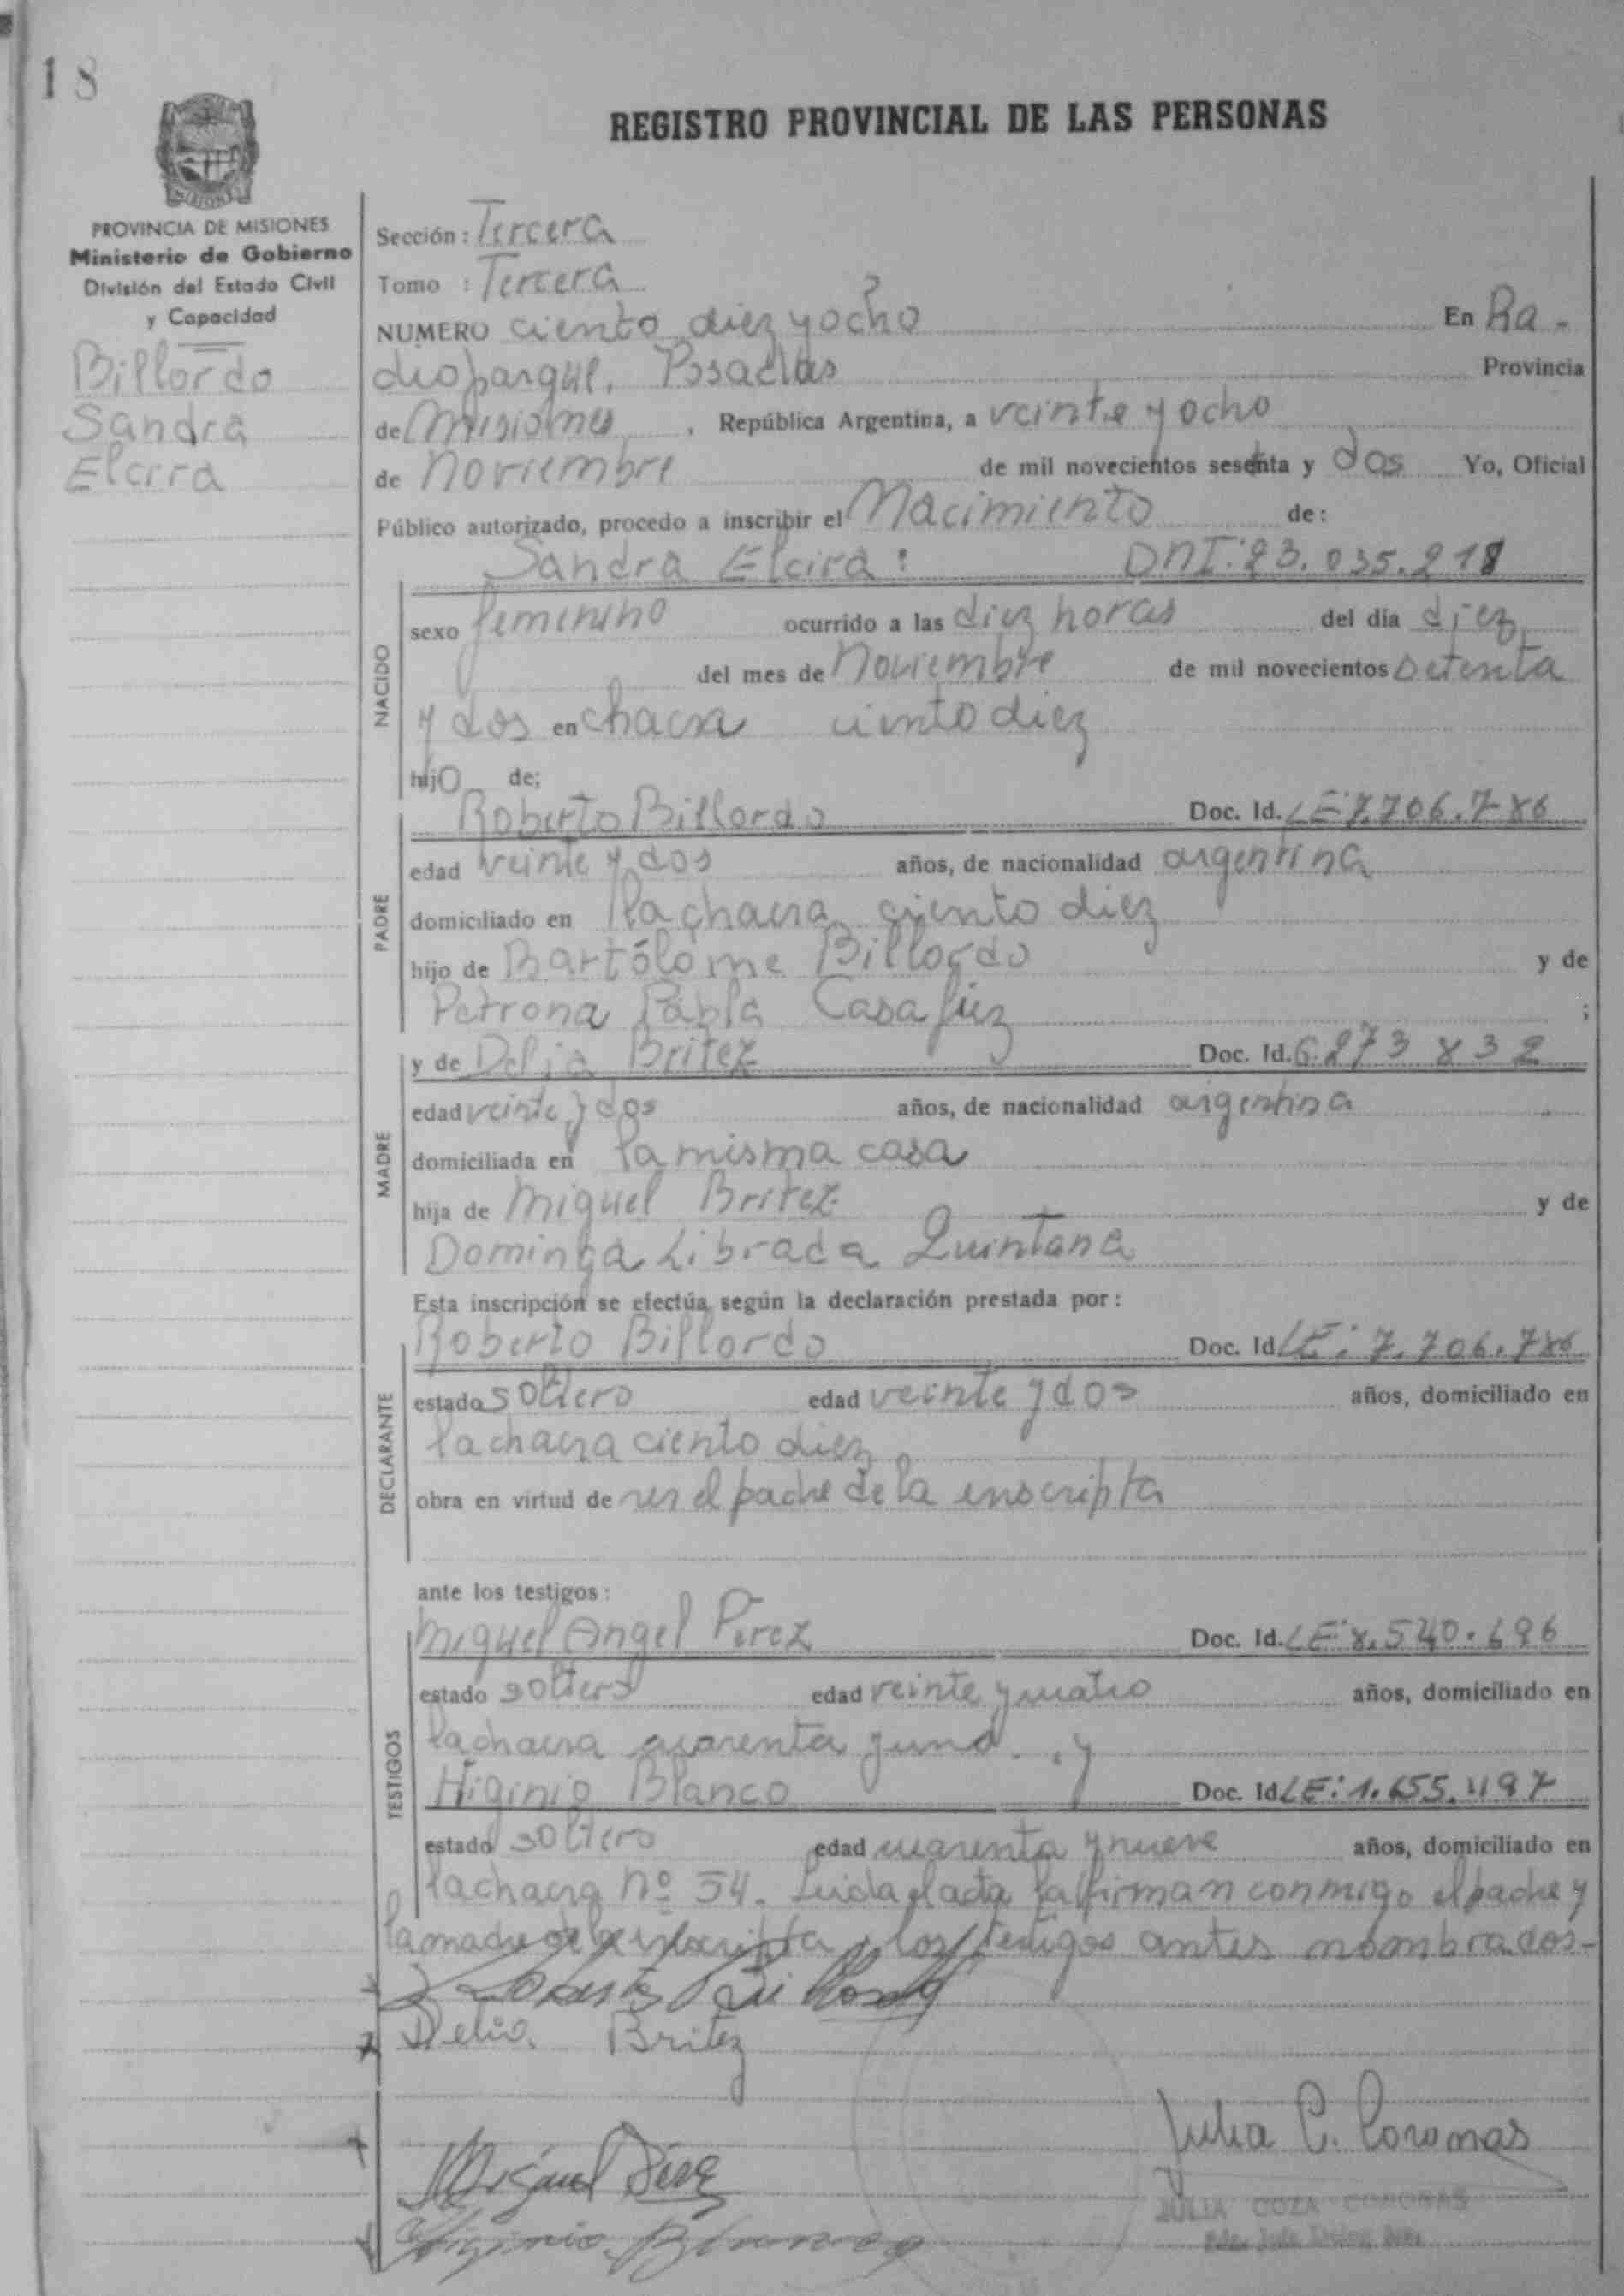 18
REGISTRO PROVINCIAL DE LAS PERSONAS
PROVINCIA DE MISIONES
Ministerio de Gobierno
División del Estado Civil
y Capacidad
Billordo
Sandra
Elcira
Sección: Tercera
Tomo : Tercera
NUMERO ciento diez y ocho En Ra-
dioparque, Posadas Provincia
de Misiones, República Argentina, a veinte y ocho
de Noviembre de mil novecientos sesenta y dos Yo, Oficial
Público autorizado, procedo a inscribir el Nacimiento de:
Sandra Elcira: DNI: 23.035.218
NACIDO
sexo femenino ocurrido a las diez horas del día diez
del mes de Noviembre de mil novecientos setenta
y dos en chacra ciento diez
hijo de;
PADRE
Roberto Billordo Doc. Id. LE 7.706.786
edad veinte y dos años, de nacionalidad argentina
domiciliado en la chacra ciento diez
hijo de Bartólome Billordo y de
Petrona Pabla Casafúz ;
MADRE
y de Delia Britez Doc. Id. 6.273832
edad veinte y dos años, de nacionalidad argentina
domiciliada en la misma casa
hija de Miguel Britez y de
Dominga Librada Quintana
Esta inscripción se efectúa según la declaración prestada por:
DECLARANTE
Roberto Billordo Doc. Id LE: 7.706.786
estado soltero edad veinte y dos años, domiciliado en
la chacra ciento diez
obra en virtud de ser el padre de la inscripta
ante los testigos:
TESTIGOS
Miguel Angel Perez Doc. Id. LE 8.540.696
estado soltero edad veinte y cuatro años, domiciliado en
la chacra cuarenta y uno. y
Higinio Blanco Doc. Id LE: 1.655.497
estado soltero edad cuarenta y nueve años, domiciliado en
la chacra nº 54. Leida el acta la firman conmigo el padre y
la madre de la inscripta y los testigos antes nombrados-
Roberto Billordo
Delia Britez
Julia C. Coronas
Miguel Pérez
JULIA COZA CORONAS
Higinio Blanco